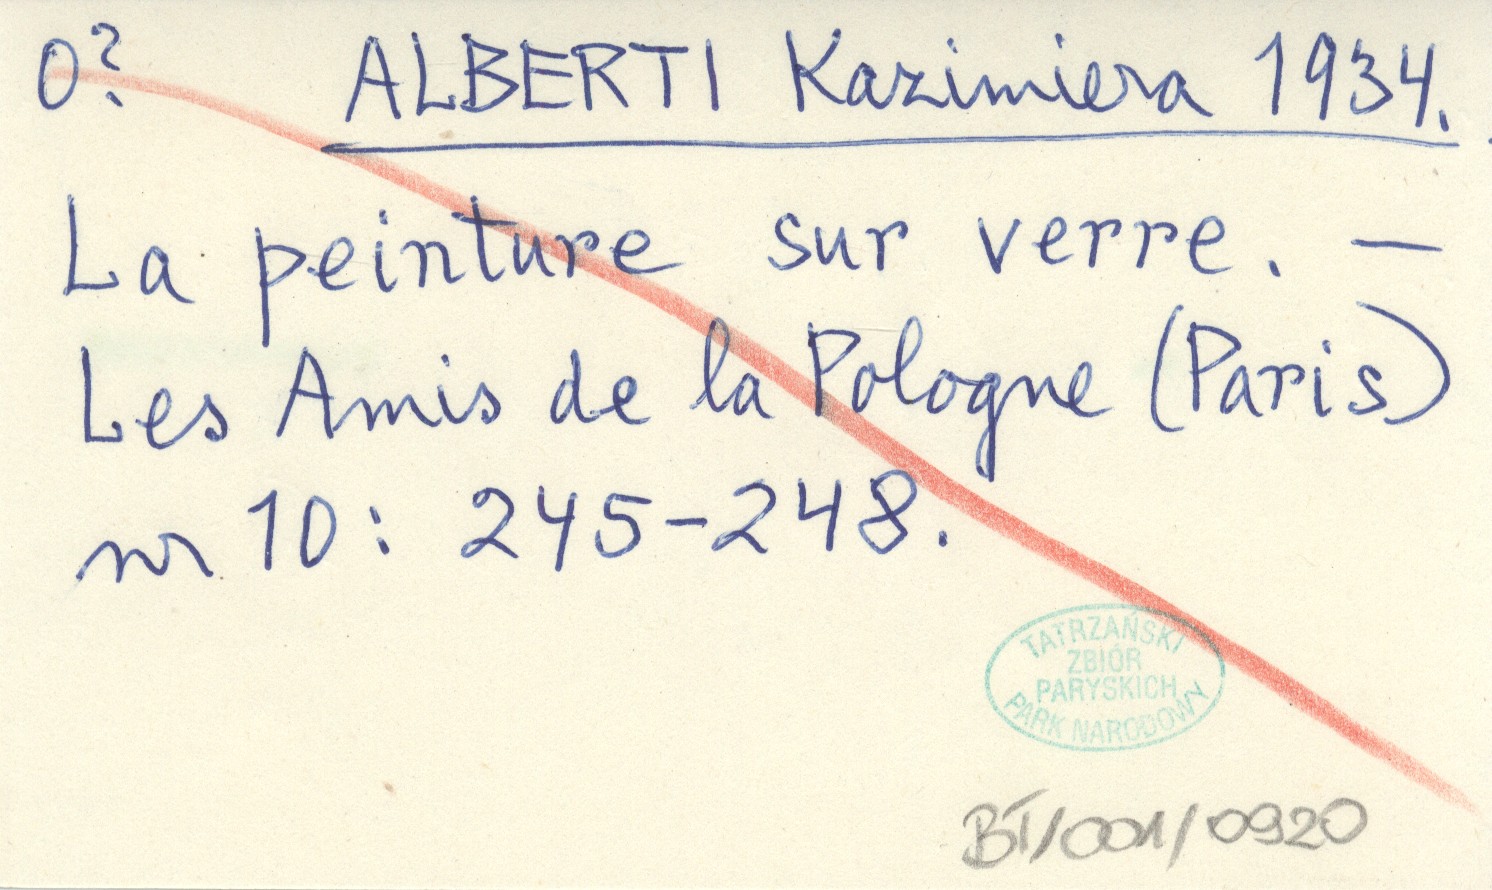 0? ALBERTI Kazimiera 1934.
La peinture sur verre. —
Les Amis de la Pologne (Paris)
nr 10: 245-248.
TATRZAŃSKI
ZBIÓR
PARYSKICH
PARK NARODOWY
BT/001/0920